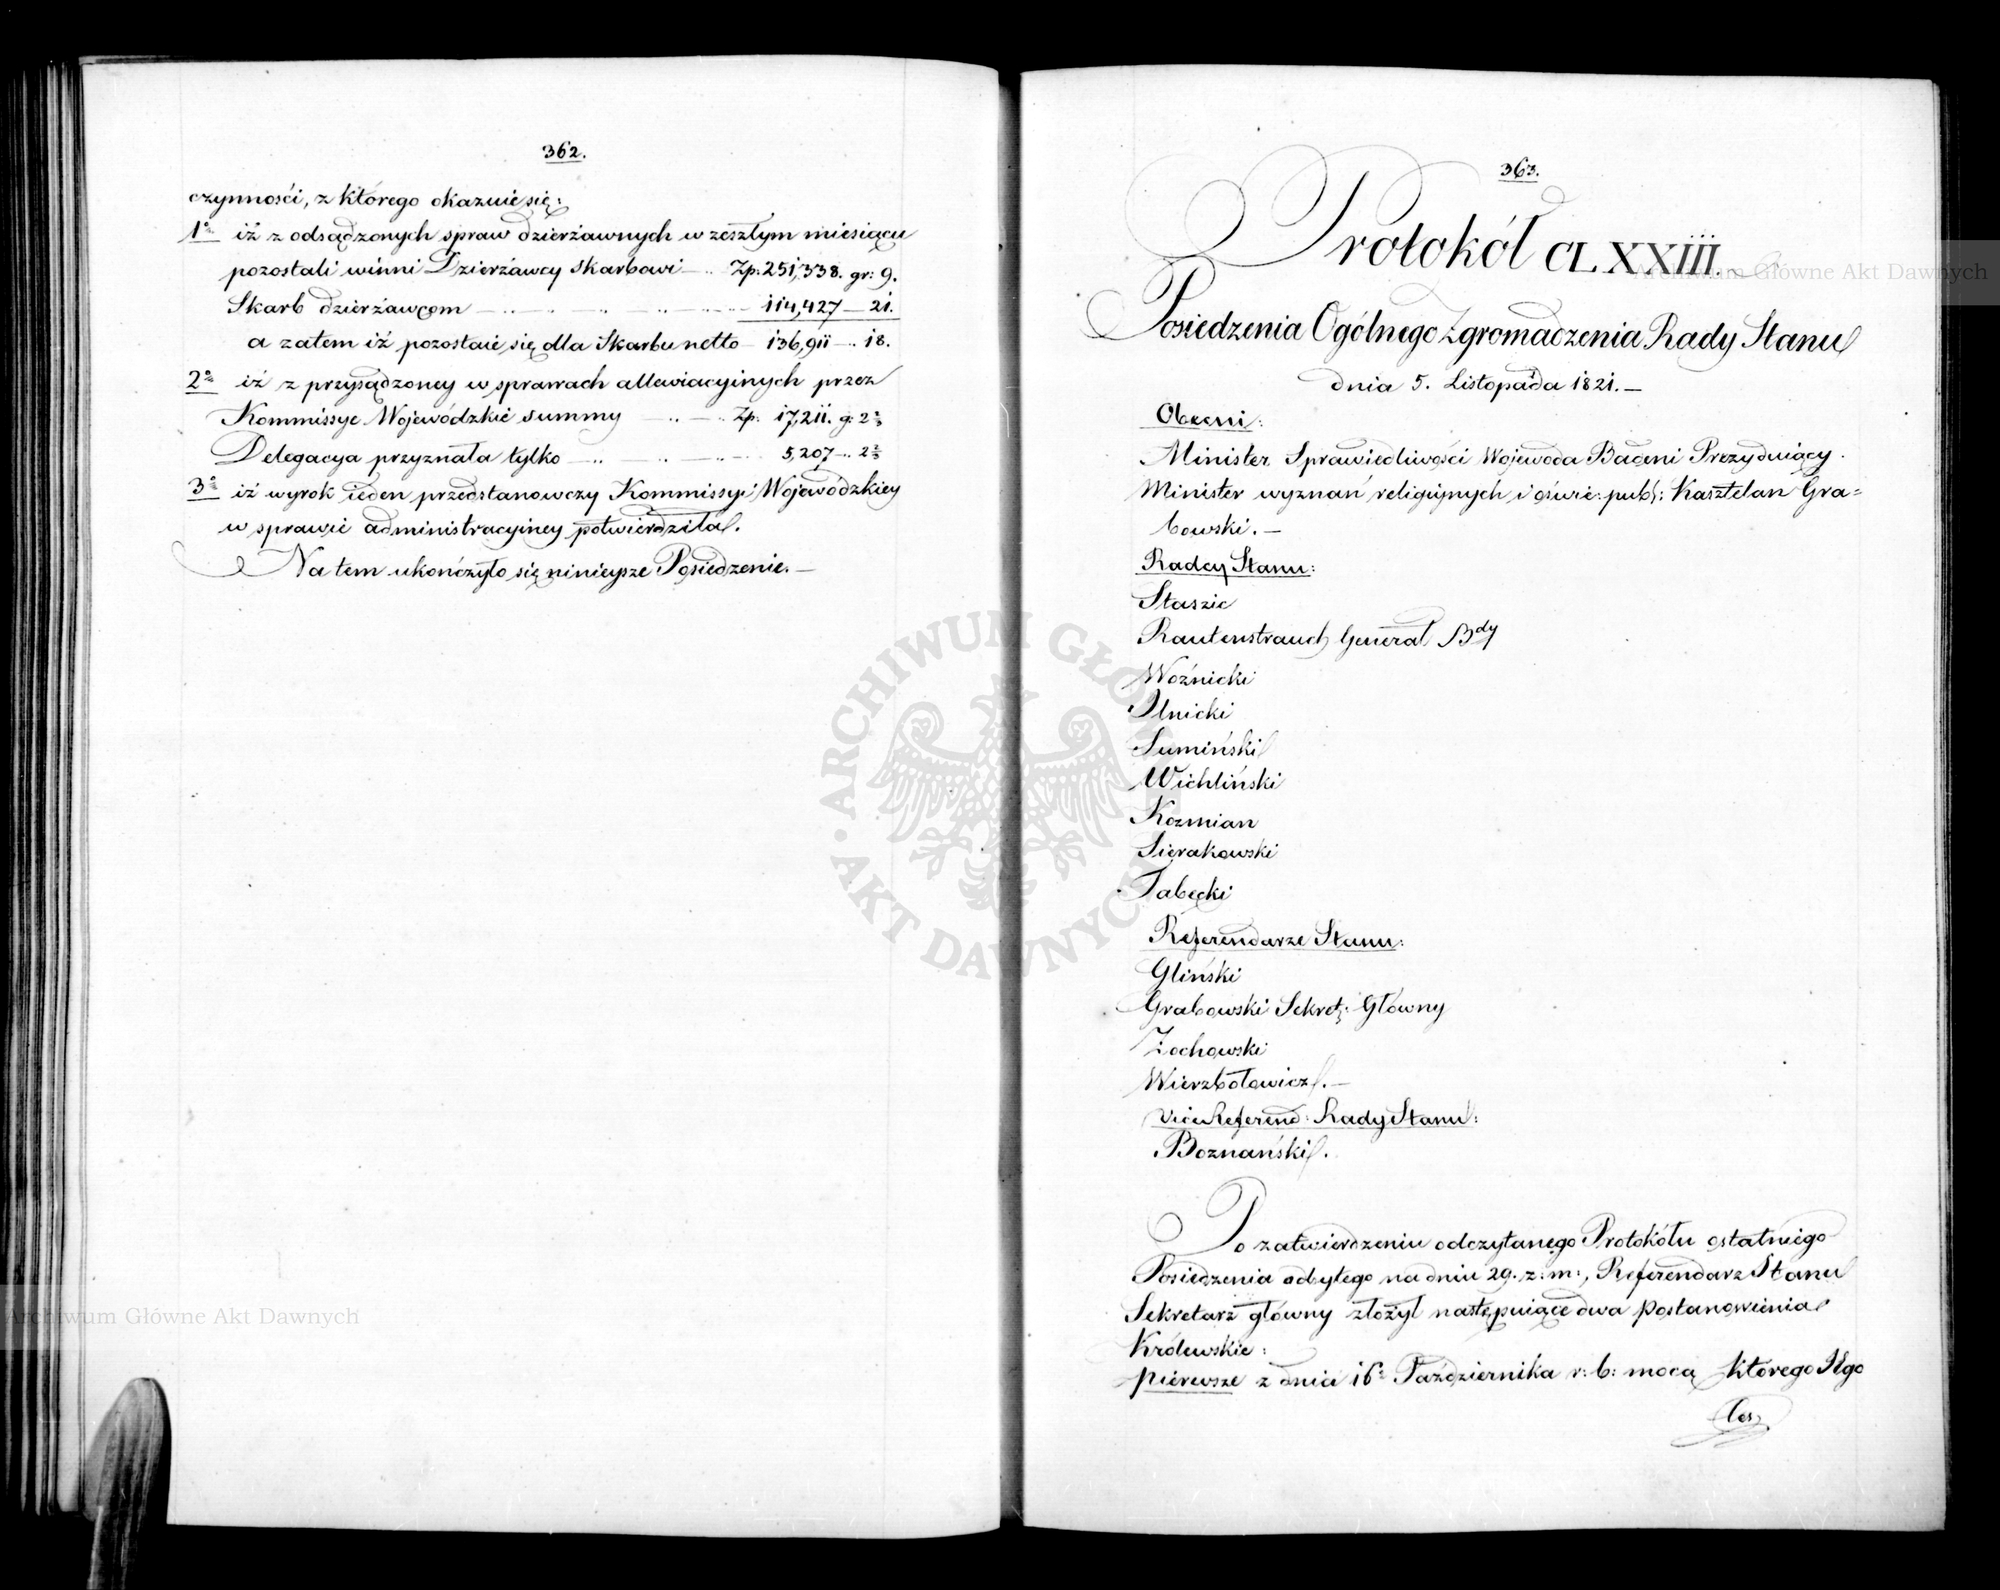 362.
czynności, z którego okazuie się:
1o iż z odsądzonych spraw dzierżawnych w zeszłym miesiącu
pozostali winni Dzierżawcy skarbowi — .. Zp: 251,338. gr: 9.
Skarb dzierżawcom — .. — .. — .. — .. — 114,427 — 21.
a zatem iż pozostaie się dla Skarbu netto — 136,911 — .. 18.
2o iż z przysądzoney w sprawach allewiacyinych przez
Kommissye Wojewódzkie summy — .. — .. Zp: 17,211. g: 2 2/3
Delegacya przyznała tylko — .. — .. — .. 5,207 — .. 2 2/3
3o iż wyrok ieden przedstanowczy Kommissyi Wojewódzkiey
w sprawie administracyiney potwierdziła.
Na tem ukończyło się ninieysze Posiedzenie. —
363.
Protokół CLXXIII.
Posiedzenia Ogólnego Zgromadzenia Rady Stanu
dnia 5. Listopada 1821. —
Obecni:
Minister Sprawiedliwości Wojewoda Badeni Prezyduiący.
Minister wyznań religijnych i oświe: publ: Kasztelan Gra=
bowski. —
Radcy Stanu:
Staszic
Rautenstrauch Generał Bdy
Woźnicki
Ilnicki
Sumiński
Wichliński
Kozmian
Sierakowski
Tabęcki
Referendarze Stanu:
Gliński
Grabowski Sekret: Główny
Żochowski
Wierzbołowicz. —
Vice Referend: Rady Stanu:
Boznański.
Po zatwierdzeniu odczytanego Protokółu ostatniego
Posiedzenia odbytego na dniu 29. z: m:, Referendarz Stanu
Sekretarz główny złożył następuiące dwa postanowienia
Królewskie:
pierwsze z dnia 16o Października r: b: mocą którego Jgo
Ces:
Archiwum Główne Akt Dawnych
ARCHIWUM GŁÓWNE AKT DAWNYCH
Archiwum Główne Akt Dawnych